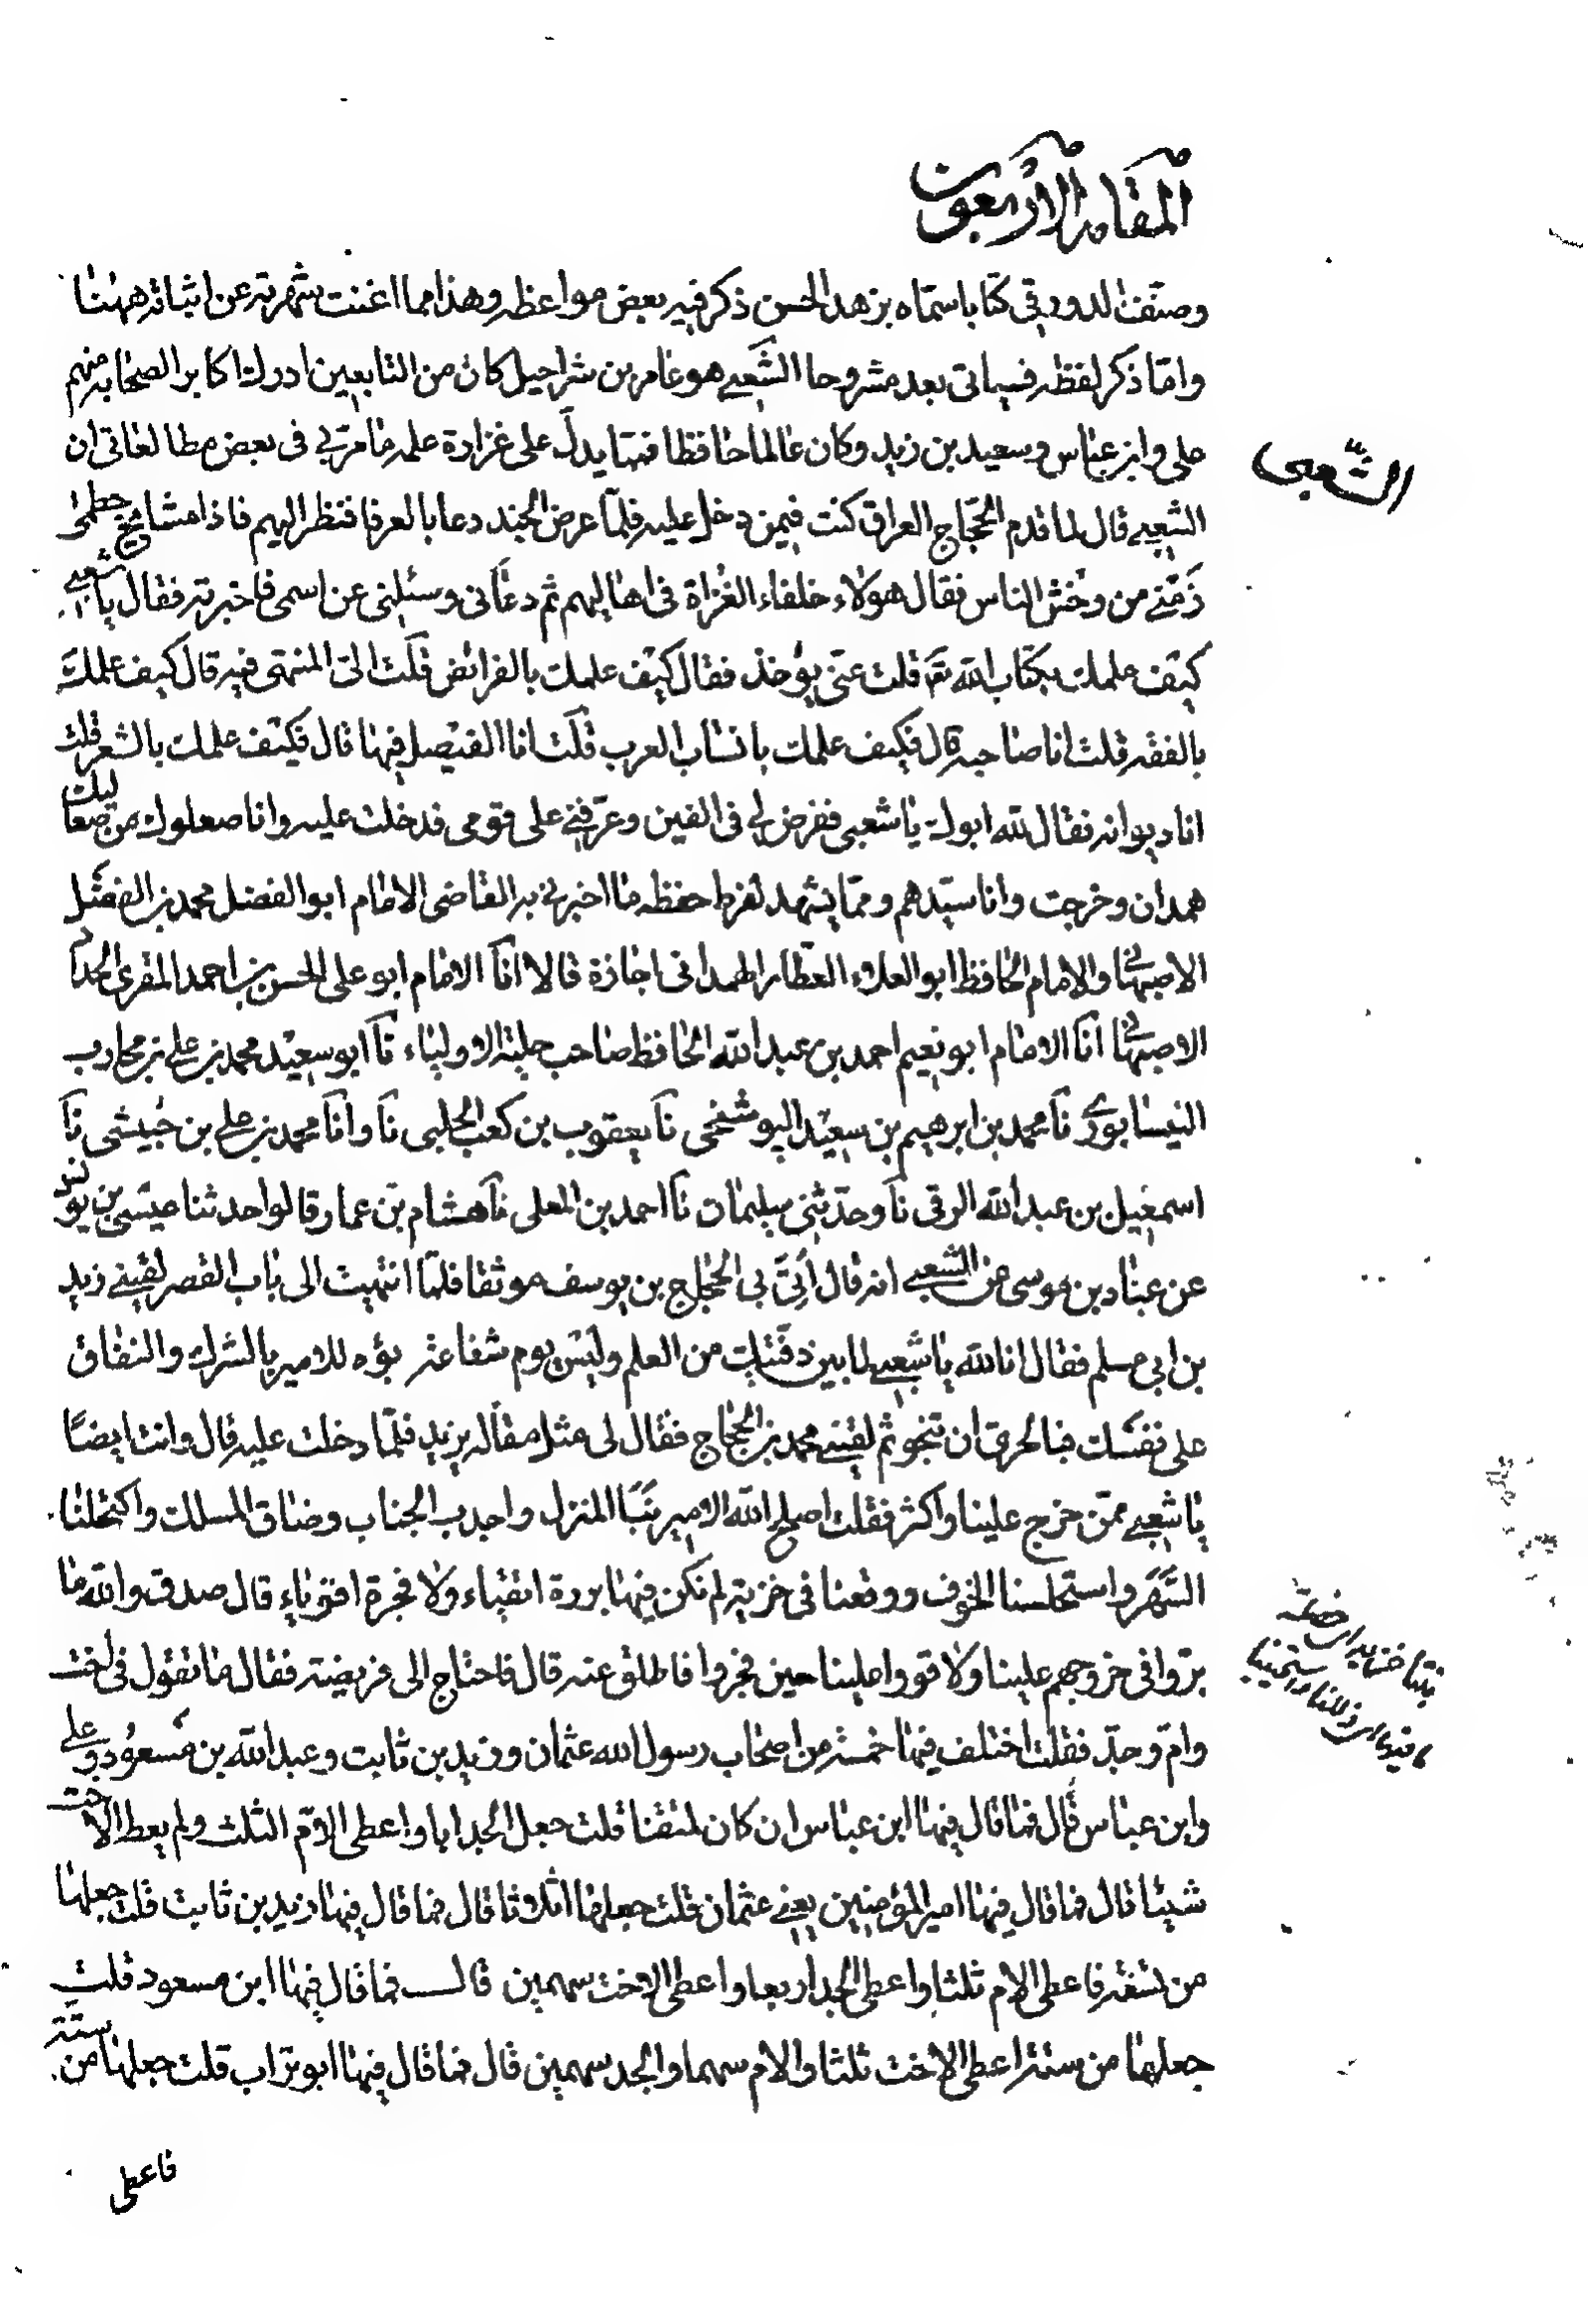 المقامة الاربعون
وصنف الدورقي كتابا سماه بزهد الحسن ذكر فيه بعض مواعظه وهذا مما اغنت شهرته عن اثباته ههنا
واما ذكر لفظه فسياتى بعد مشروحا الشعبي هو عامر بن شراحيل كان من التابعين ادرك اكابر الصحابة منهم
على وابن عباس وسعيد بن زيد وكان عالما حافظا فهما يدل على غزارة علمه ما مر بي فى بعض مطالعاتى ان
الشعبى
الشعبي قال لما قدم الحجاج العراق كنت فيمن دخل عليه فلما عرض الجند دعا بالعرفا فنظر اليهم فاذا مشايخ
زمنى من وخش الناس فقال هؤلاء خلفاء الغزاة فى اهاليهم ثم دعانى وسئلنى عن اسمى فاخبرته فقال يا شعبي
كيف علمك بكتاب الله تع قلت عنى يؤخذ فقال كيف علمك بالفرائض قلت الىّ المنتهى فيه قال كيف علمك
بالفقه قلت انا صاحبه قال فكيف علمك بانساب العرب قلت انا الفيصل فيها قال فكيف علمك بالشعر قلت
انا ديوانه فقال لله ابوك يا شعبى ففرض لي فى الفين وعرّفنى على قومى فدخلت عليه وانا صعلوك من صعاليك
همدان وخرجت وانا سيدهم ومما يشهد لفرط حفظه ما اخبرنى به القاضى الامام ابو الفضل محمد بن الفضل
الاصبهانى والامام الحافظ ابو العلاء العطار الهمدانى اجازة قالا انا الامام ابو على الحسن بن احمد المقرى الحداد
الاصبهانى انا الامام ابو نعيم احمد بن عبد الله الحافظ صاحب حلية الاولياء نا ابو سعيد محمد بن على بن محارب
النيسابورى نا محمد بن ابرهيم بن سعيد البوشنجى نا يعقوب بن كعب الحلبى نا وانا محمد بن على بن حبيشى نا
اسمعيل بن عبد الله الرقى نا وحدثنى سليمان نا احمد بن المعلى نا هشام بن عمار قالوا حدثنا عيسى بن يونس
عن عباد بن موسى عن الشعبي انه قال اتى بى الحجاج بن يوسف موثقا فلما انتهيت الى باب القصر لقينى زيد
بن ابى مسلم فقال انا لله يا شعبي لما بين دفتيك من العلم وليس يوم شفاعة بؤه للامير بالشرك والنفاق
على نفسك فبالحرى ان تنجو ثم لقينى محمد بن الحجاج فقال لى مثل مقالة يزيد فلما دخلت عليه قال وانت ايضا
يا شعبي ممن خرج علينا واكثر فقلت اصلح الله الامير نبا المنزل واجدب الجناب وضاق المسلك واكتحلنا
السهر واستحلسنا الخوف ووقعنا فى خزية لم نكن فيها بررة اتقياء ولا فجرة اقوياء قال صدق والله ما
برّوا فى خروجهم علينا ولا قووا علينا حين فجروا فاطلق عنه قال فاحتاج الى فريضة فقال ما تقول فى اخت
وام وجد فقلت اختلف فيها خمسة من اصحاب رسول الله عثمان وزيد بن ثابت وعبد الله بن مسعود وعلى
وابن عباس قال فما قال فيها ابن عباس ان كان لمتقنا قلت جعل الجد ابا واعطى الام الثلث ولم يعط الاخت
شيئا قال فما قال فيها امير المؤمنين يعنى عثمان قلت جعلها اثلاثا قال فما قال فيها زيد بن ثابت قلت جعلها
من تسعة فاعطى الام ثلثا واعطى الجد اربعا واعطى الاخت سهمين قال فما قال فيها ابن مسعود قلت
جعلها من ستة اعطى الاخت ثلثا والام سهما والجد سهمين قال فما قال فيها ابو تراب قلت جعلها من ستة
فاعطى